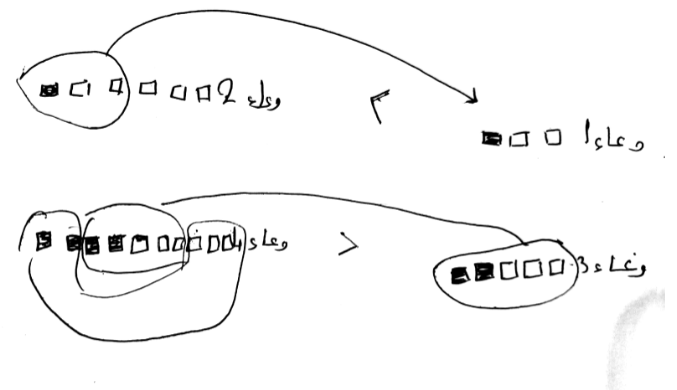 وعاء 2
وعاء 1
وعاء 4 > وعاء 3